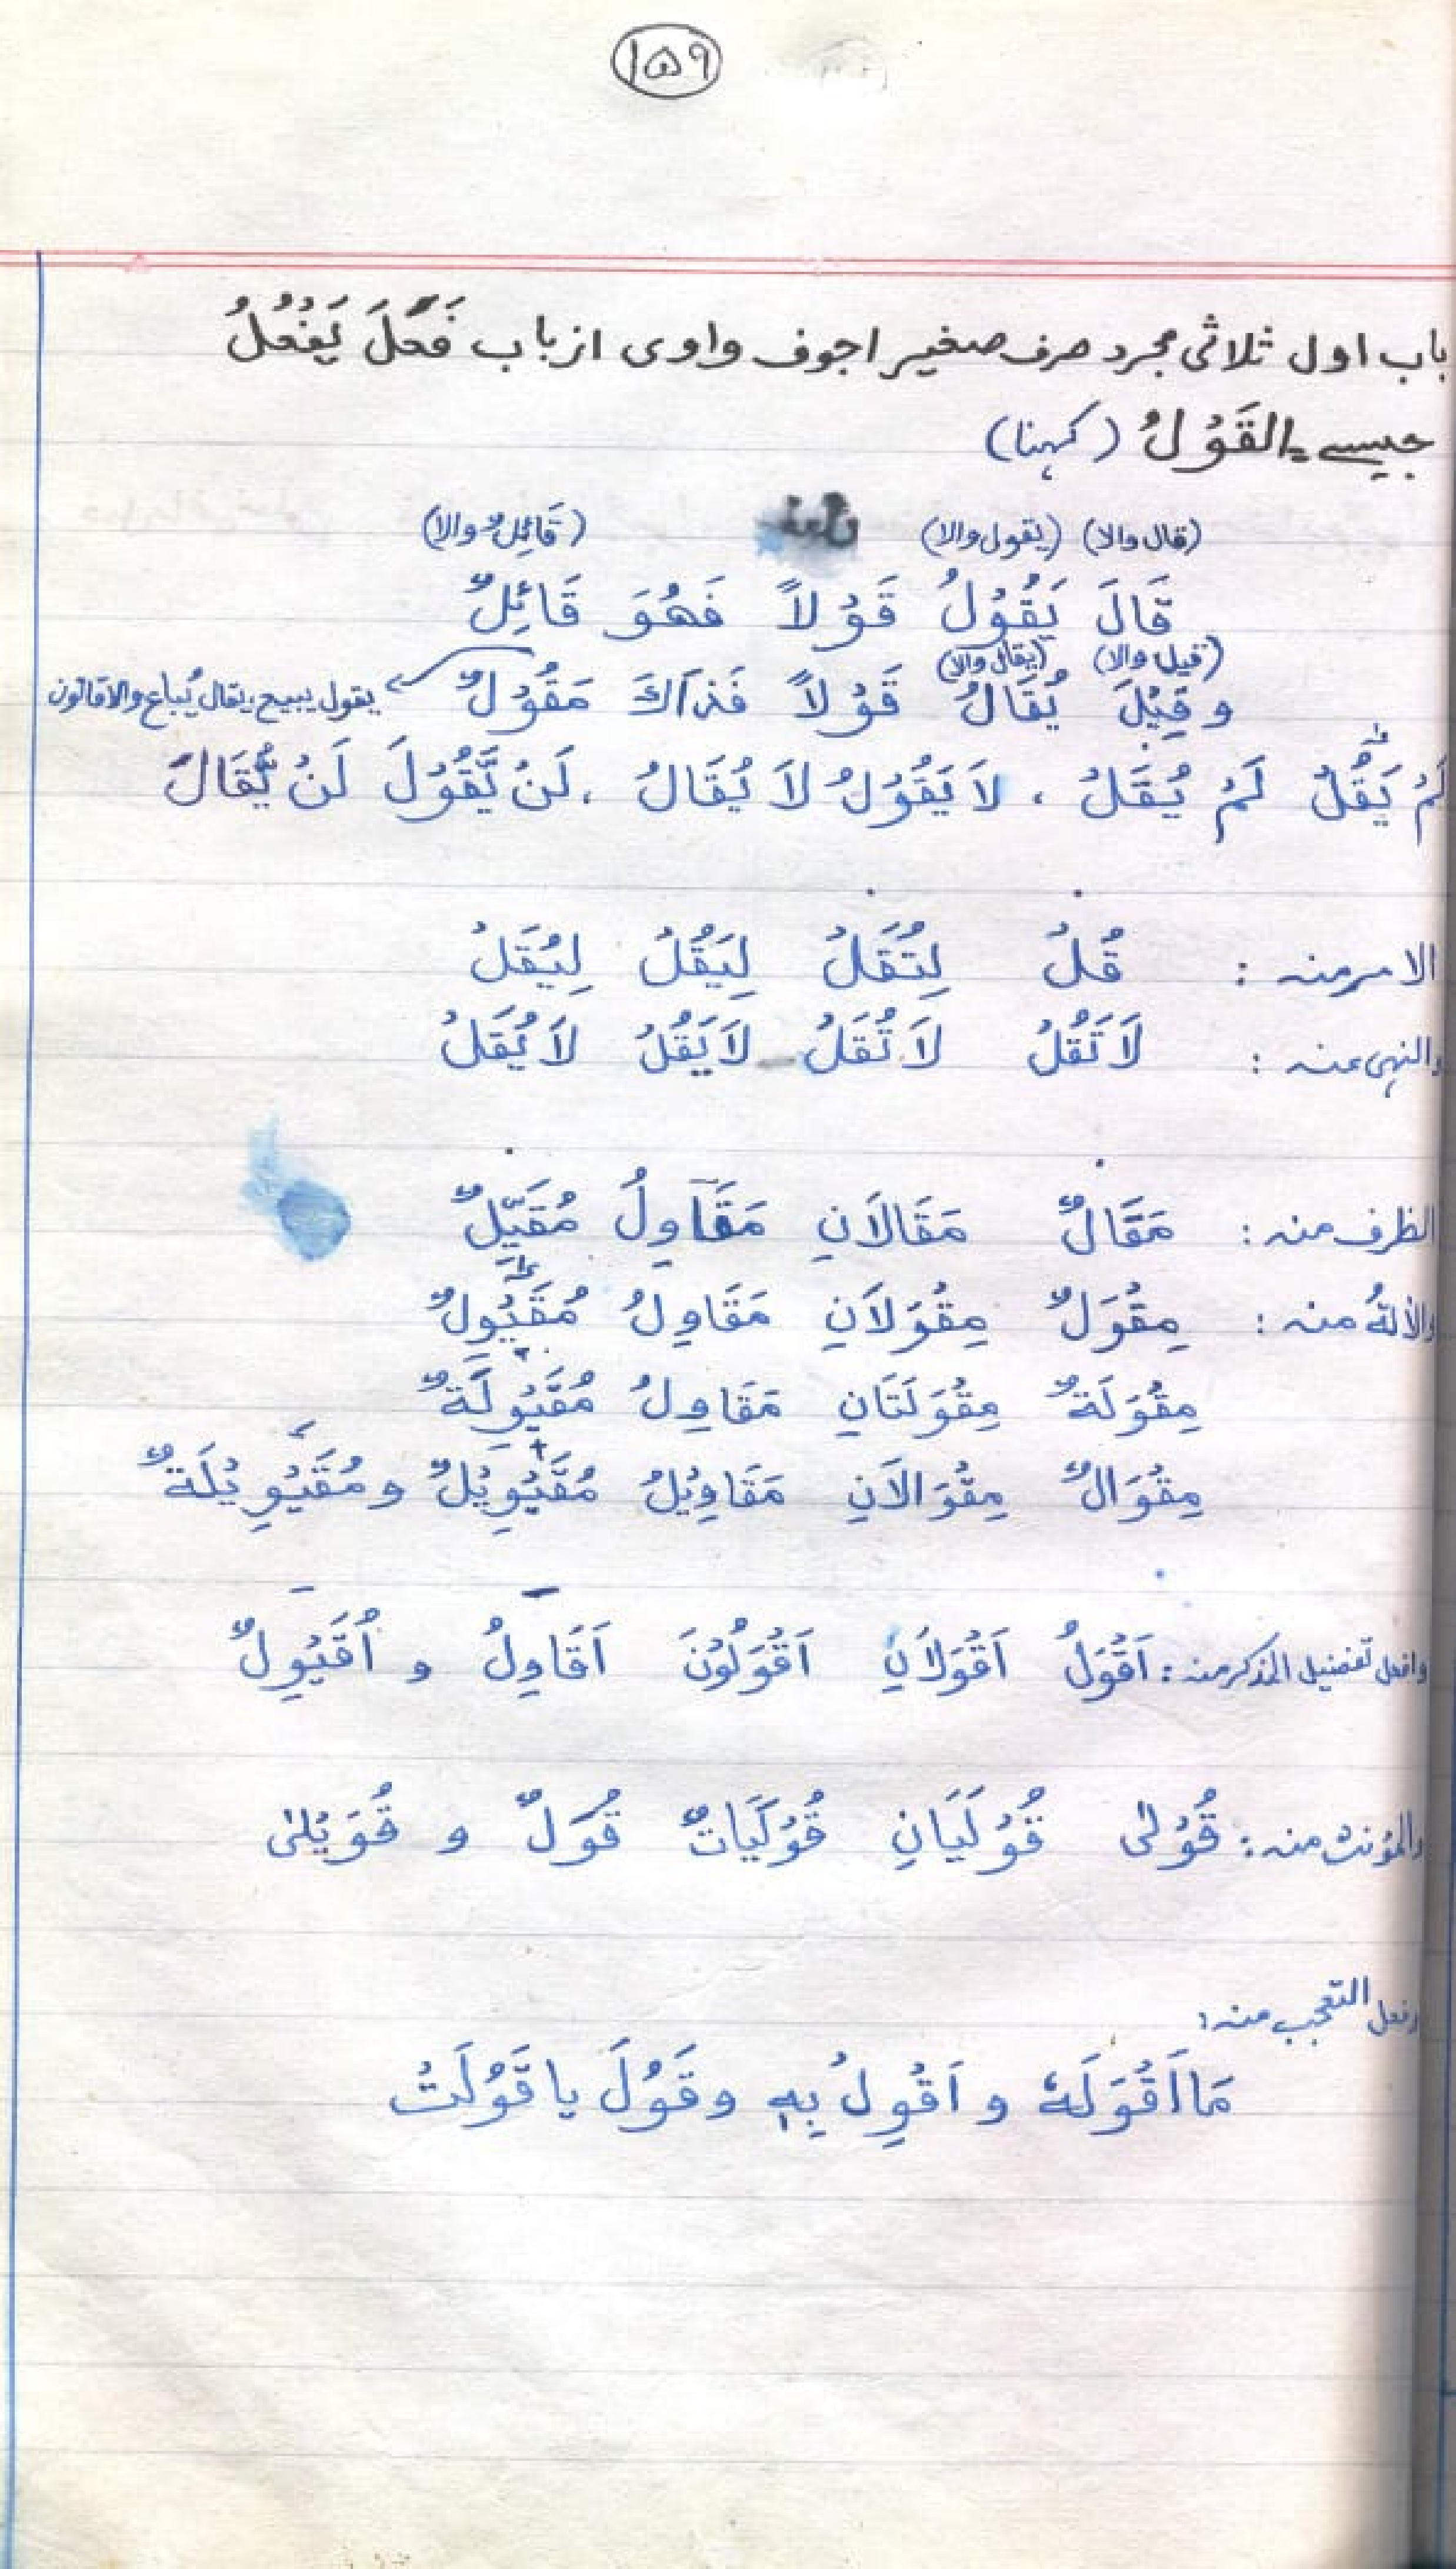 ۱۵۹
باب اول ثلاثی مجرد صرف صغیر اجوف واوی از باب فَعَلَ یَفْعُلُ
جیسے القَوْلُ (کہنا)
(قال والا) (یقول والا) (قَائِلٌ والا)
قَالَ یَقُوْلُ قَوْلاً فَهُوَ قَائِلٌ
(قیل والا) (یقال والا)
وقِیْلَ یُقَالُ قَوْلاً فَذَاكَ مَقُوْلٌ یقول یبیع، یقال یُباع والا قانون
لَمْ یَقُلْ لَمْ یُقَلْ ، لاَ یَقُوْلُ لاَ یُقَالُ ، لَنْ یَّقُوْلَ لَنْ یُّقَالَ
الامر منہ : قُلْ لِتُقَلْ لِیَقُلْ لِیُقَلْ
والنہی عنہ : لاَ تَقُلْ لاَ تُقَلْ لاَ یَقُلْ لاَ یُقَلْ
الظرف منہ : مَقَالٌ مَقَالاَنِ مَقَاوِلُ مُقَیِّلٌ
والاٰلۃُ منہ : مِقْوَلٌ مِقْوَلاَنِ مَقَاوِلُ مُقَیْوِلٌ
مِقْوَلَةٌ مِقْوَلَتَانِ مَقَاوِلُ مُقَیْوِلَةٌ
مِقْوَالٌ مِقْوَالاَنِ مَقَاوِیْلُ مُقَیْوِیْلٌ و مُقَیْوِیْلَةٌ
وافعل تفضیل المذکر منہ : اَقْوَلُ اَقْوَلاَنِ اَقْوَلُوْنَ اَقَاوِلُ و اُقَیْوِلٌ
والمؤنث منہ : قُوْلیٰ قُوْلَیَانِ قُوْلَیَاتٌ قُوَلٌ و قُوَیْلیٰ
وفعل التعجب منہ :
مَا اَقْوَلَهٗ و اَقْوِلْ بِهٖ وقَوُلَ یا قَوُلَتْ